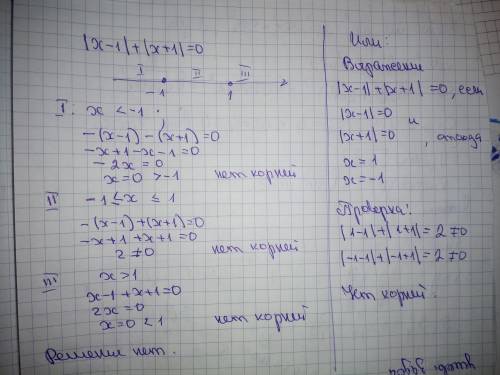 |x-1|+|x+1|=0
I II III
-1 1
I: x < -1
-(x-1)-(x+1)=0
-x+1-x-1=0
-2x=0
x=0 >-1 нет корней
II -1≤x≤1
-(x-1)+(x+1)=0
-x+1+x+1=0
2≠0 нет корней
III x>1
x-1+x+1=0
2x=0
x=0<1 нет корней
Решения нет.
Или:
Выражение
|x-1|+|x+1|=0, если
|x-1|=0
и
|x+1|=0, откуда
x=1
x=-1
Проверка:
|1-1|+|1+1|=2≠0
|-1-1|+|-1+1|=2≠0
Нет корней.